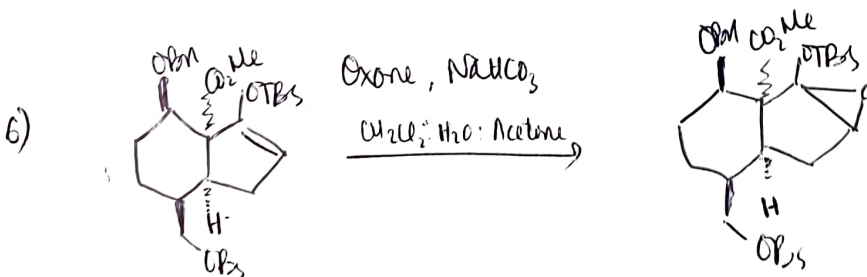 6)
OBn
CO2Me
OTBS
H
OPBs
Oxone, NaHCO3
CH2Cl2: H2O: Acetone
OBn
CO2Me
OTBS
O
H
OPBs